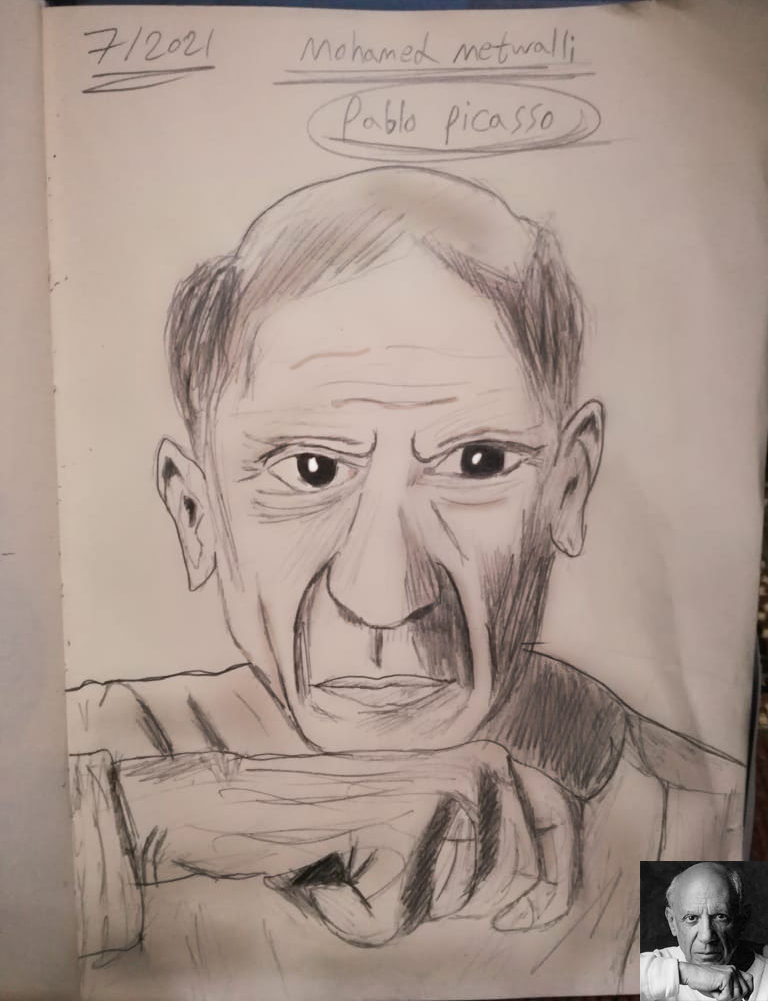 7/2021
Mohamed metwalli
Pablo picasso